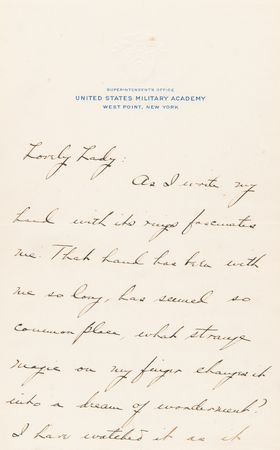 SUPERINTENDENT'S OFFICE
UNITED STATES MILITARY ACADEMY
WEST POINT, NEW YORK
Lovely Lady:
As I write my
hand with its rings fascinates
me. That hand has been with
me so long, has seemed so
common place, what strange
magic on my finger changes it
into a dream of wonderment?
I have watched it as it